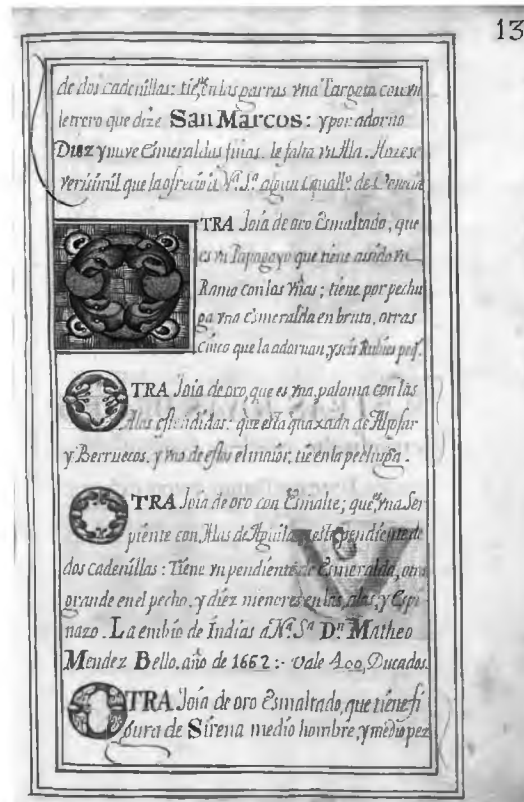 13
de dos cadenillas: tie, en las garras vna Targeta con vn
letrero que dize San Marcos: y por adorno
Diez y nueve Esmeraldas finas. le falta vn Illa. Hazese
verisimil que la ofreciò à Nª. Sª. algun Cauallº. de Venecia
OTRA Joia de oro Esmaltado, que
es vn Papagayo que tiene assido vn
Ramo con las vñas; tiene por pechu
ga vna esmeralda en bruto, otras
cinco que la adornan y seis Rubies peq̃.
OTRA Joia de oro, que es vna paloma con las
Alas estendidas: que està quaxada de Aljofar
y Berruecos. y vno de ellos el maior, tiẽ en la pechuga.
OTRA Joia de oro con Esmalte; que es vna Ser
piente con Alas de Aguila; està pendiente de
dos cadenillas: Tiene vn pendiente de Esmeralda, otra
grande en el pecho, y diez menores en las alas, y Espi
nazo. La embio de Indias à Nª. Sª Dⁿ. Matheo
Mendez Bello. año de 1662:- vale 400, Ducados.
OTRA Joia de oro Esmaltado, que tiene fi
gura de Sirena medio hombre, y medio pez